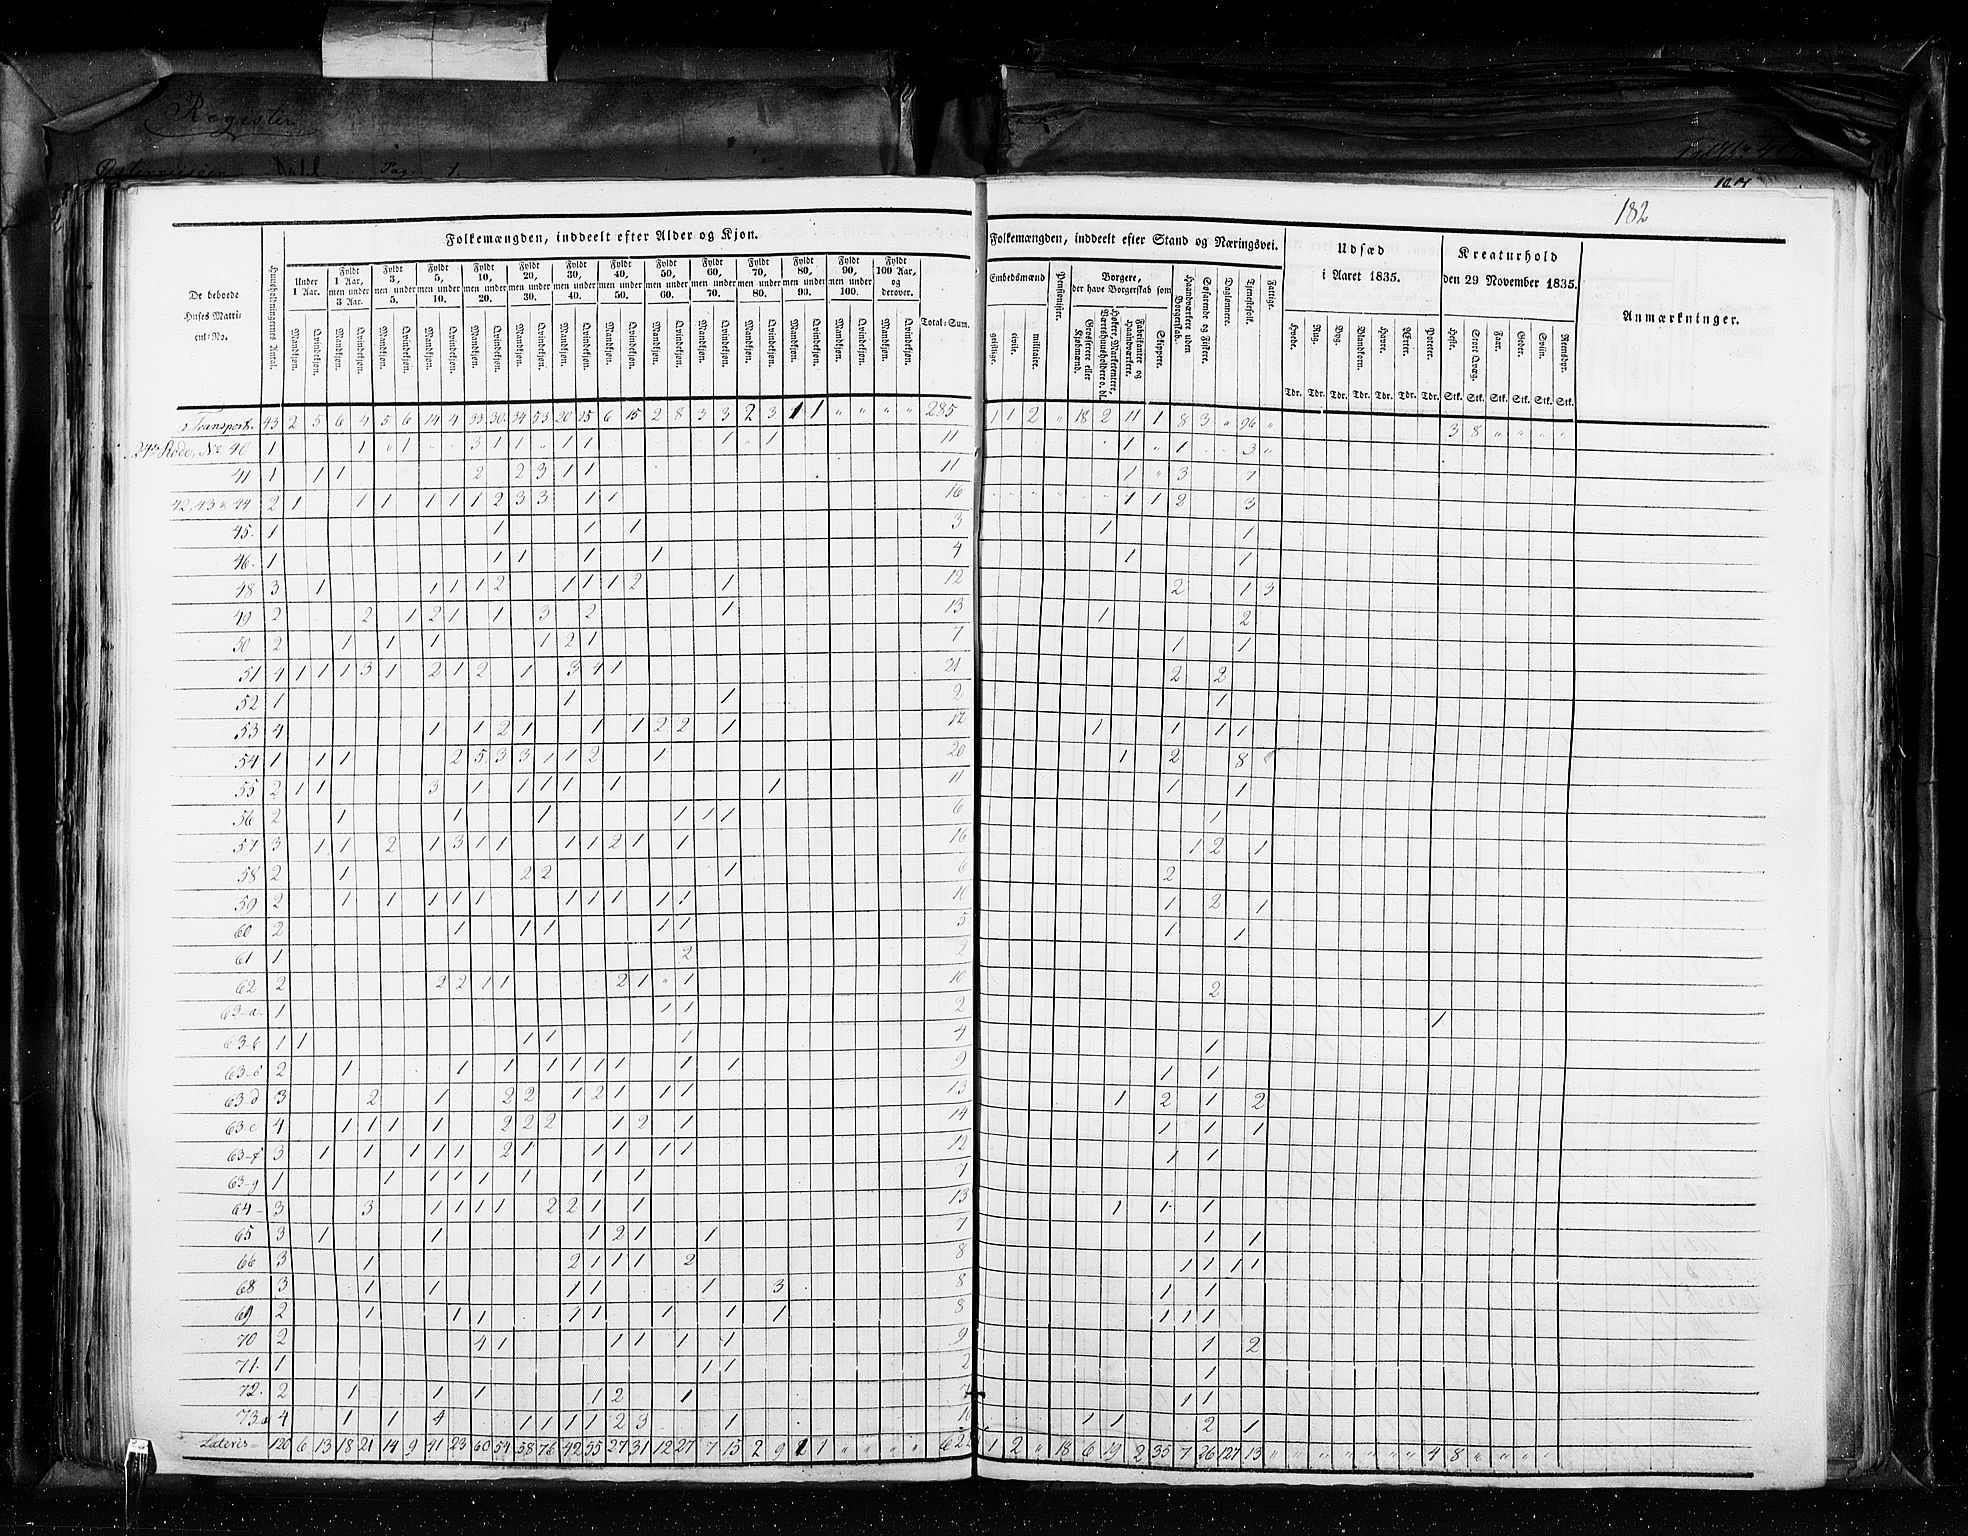 Register
Pag. 1.
182
Folkemængden, inddeelt efter Alder og Kjøn.
Folkemængden, inddeelt efter Stand og Næringsvei.
Udsæd
i Aaret 1835.
Kreaturhold
den 29 November 1835.
Anmærkninger.
De beboede
Huses Matri-
cul-No.
Huusholdningernes Antal.
Under 1 Aar.
Fyldt 1 Aar, men under 3 Aar.
Fyldt 3, men under 5.
Fyldt 5, men under 10.
Fyldt 10, men under 20.
Fyldt 20, men under 30.
Fyldt 30, men under 40.
Fyldt 40, men under 50.
Fyldt 50, men under 60.
Fyldt 60, men under 70.
Fyldt 70, men under 80.
Fyldt 80, men under 90.
Fyldt 90, men under 100.
Fyldt 100 Aar, og derover.
Mandkjøn. Qvindekjøn.
Total-Sum.
Embedsmænd
geistlige. civile. militaire.
Pensionister.
Borgere,
der have Borgerskab som
Grosserer eller Kjøbmænd.
Høkere, Marketentere, Værtshuusholdere o. dl.
Fabrikanter og Haandværkere.
Skippere.
Haandværkere uden Borgerskab.
Søfarende og Fiskere.
Daglønnere.
Tjenestefolk.
Fattige.
Hvede. Rug. Byg. Blandkorn. Havre. Erter. Poteter.
Tdr. Tdr. Tdr. Tdr. Tdr. Tdr. Tdr.
Heste. Stort Qvæg. Faar. Geder. Sviin. Reensdyr.
Stk. Stk. Stk. Stk. Stk. Stk.
Transport. 43 2 5 6 4 5 6 14 4 33 30 34 53 20 25 6 15 2 8 3 3 2 3 1 1 " " " " 285 1 1 2 " 18 2 11 1 8 3 " 96 " 3 8 " " " "
24de Rode, No 40 1 1 " 1 3 1 1 1 1 1 1 11 1 " 1 3 "
41 1 1 1 2 2 3 1 1 11 1 " 3 7
42, 43 & 44 2 1 1 1 1 1 1 2 3 3 1 1 16 1 1 2 3
45. 1 1 1 1 3 1 1
46. 1 1 1 1 1 4 1 1
48 3 1 1 1 1 2 1 1 1 2 1 12 2 1 3
49 2 2 1 2 1 1 3 2 1 13 1 2
50 2 1 1 1 1 2 1 7 1 1
51 4 1 1 1 3 1 2 1 2 1 3 4 1 21 2 2
52 1 1 1 2 1
53 4 1 1 2 1 1 1 2 2 1 12 1 1 1 1
54 1 1 1 2 5 3 3 1 1 2 1 20 1 2 8
55 2 1 1 3 1 1 1 1 1 1 11 1 1
56 2 1 1 1 1 1 1 6 1
57 3 1 1 2 1 3 1 1 1 1 2 1 1 16 1 2 1
58 2 1 2 2 1 6 2
59 2 1 1 1 1 1 1 1 1 1 1 10 1 2 1
60 2 1 1 1 1 1 5 1 1
61 1 2 2
62 2 2 2 1 1 2 1 " 1 10 2
63-a- 1 1 1 2 1
63-b 1 1 1 1 1 4 1
63-c 2 1 1 1 1 1 1 1 1 1 9 1 1
63-d 3 2 1 2 2 1 2 1 1 1 13 1 2 1 2
63-e 4 1 1 1 1 2 2 2 1 2 1 14 1 1 1
63-f 3 1 1 1 1 1 2 1 1 1 1 1 12 1 1
63-g 1 1 1 1 1 1 1 1 7
64- 3 3 1 1 1 1 2 2 1 1 13 1 1 1
65 3 1 1 1 2 1 1 7 1 1
66 3 1 2 1 1 1 2 8 1 1 1 1
68 3 1 1 1 1 1 3 8 1 1
69 2 1 1 1 1 1 1 1 1 8 1 1 1
70 2 4 1 1 1 1 1 9 1 2
71. 1 1 1 2 1
72. 2 1 1 1 1 2 1 7 1 1
73a 4 1 1 4 1 1 1 1 2 3 1 16 1 1 2 1
Lateris- 120 6 13 18 21 14 9 41 23 60 54 58 76 42 55 27 31 12 27 7 15 2 9 1 1 " " " " 1 2 " 18 6 19 2 35 7 26 127 13 " " " " " " " 4 8 " " " "